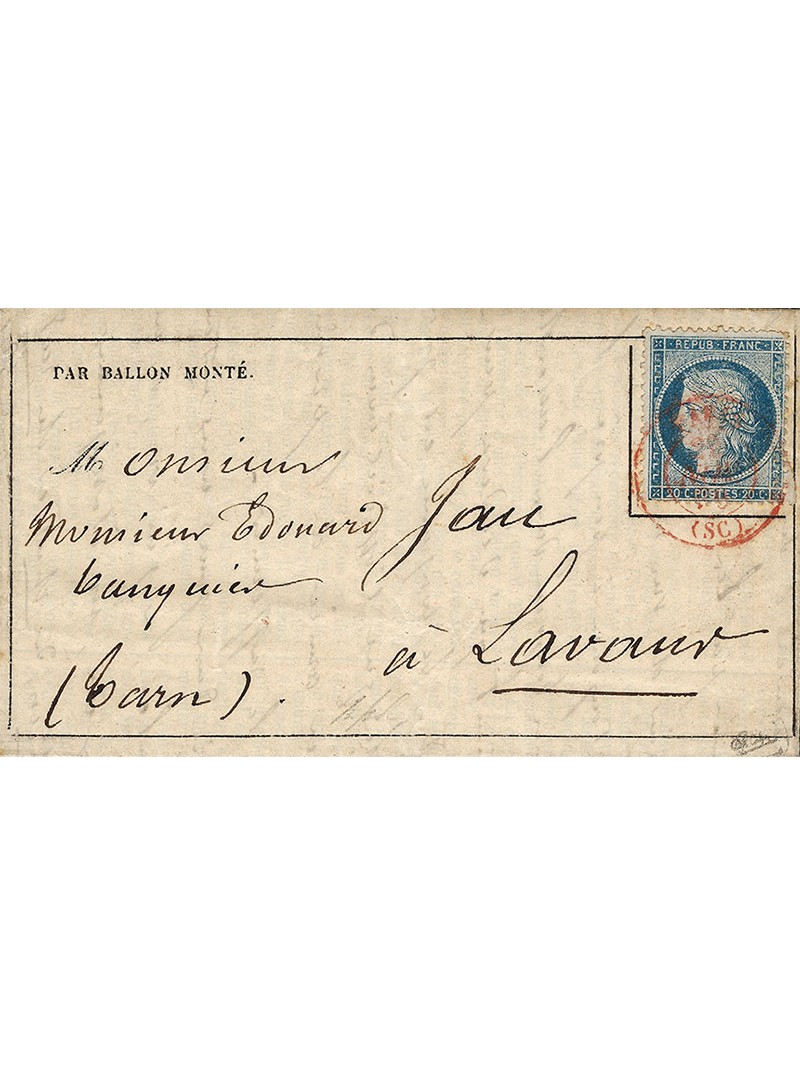 PAR BALLON MONTÉ.
REPUB·FRANC·
20·C·POSTES·20·C·
(SC)
Monsieur
Monsieur Edouard Jau
banquier
à Lavaur
(Tarn).